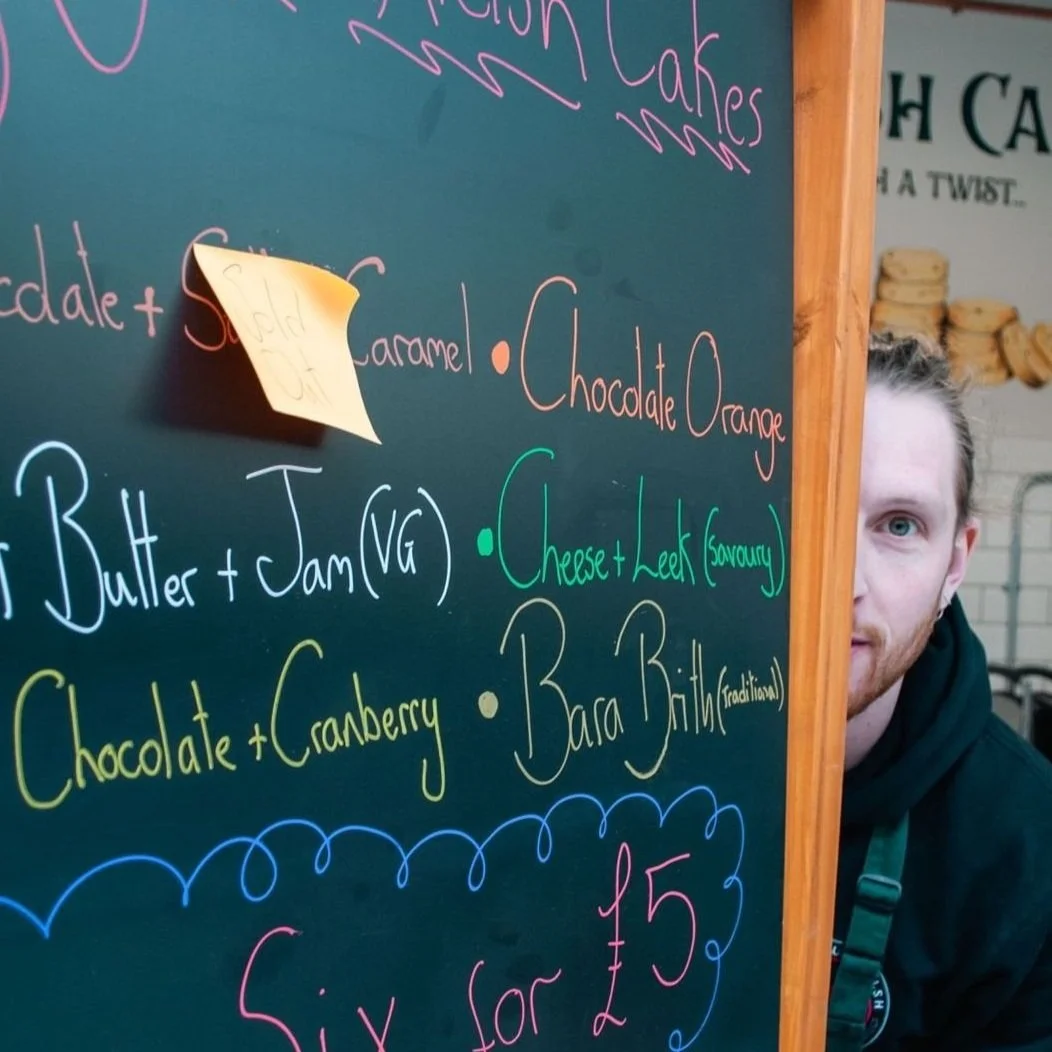 Cakes
+ Caramel • Chocolate Orange
Sold
Out
Butter + Jam (VG) • Cheese + Leek (savoury)
Chocolate + Cranberry • Bara Brith (Traditional)
Six for £5
H CA
H A TWIST..